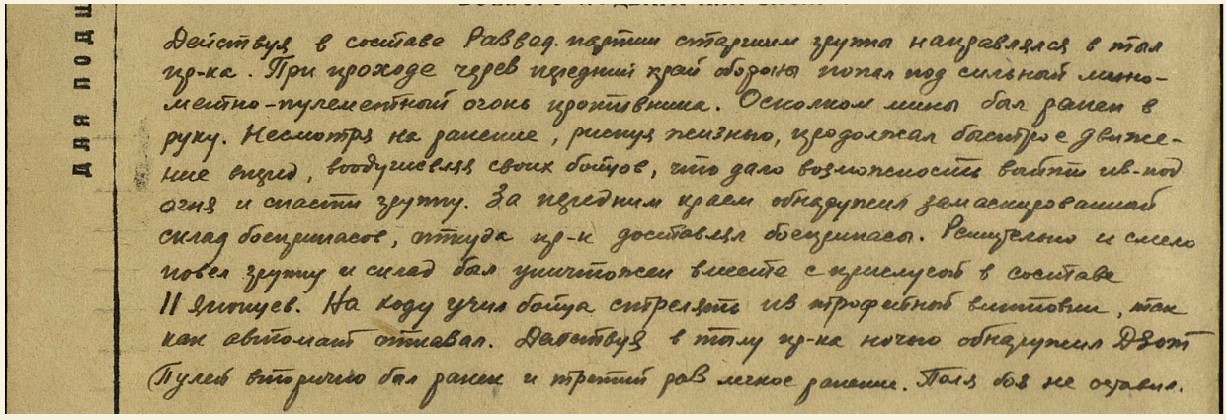 Действуя в составе Развед. партии старшим группы направлялся в тыл
пр-ка. При проходе через передний край обороны попал под сильный мино-
метно-пулеметный огонь противника. Осколком мины был ранен в
руку. Несмотря на ранение, рискуя жизнью, продолжал быстрое движе-
ние вперед, воодушевляя своих бойцов, что дало возможность выйти из-под
огня и спасти группу. За передним краем обнаружил замаскированный
склад боеприпасов, откуда пр-к доставлял боеприпасы. Решительно и смело
повел группу и склад был уничтожен вместе с прислугой в составе
11 японцев. На ходу учил бойца стрелять из трофейной винтовки, так
как автомат отказал. Действуя в тылу пр-ка ночью обнаружил Дзот
Пулей вторично был ранен и третий раз легкое ранение. Поля боя не оставил.
ДЛЯ ПОДШ